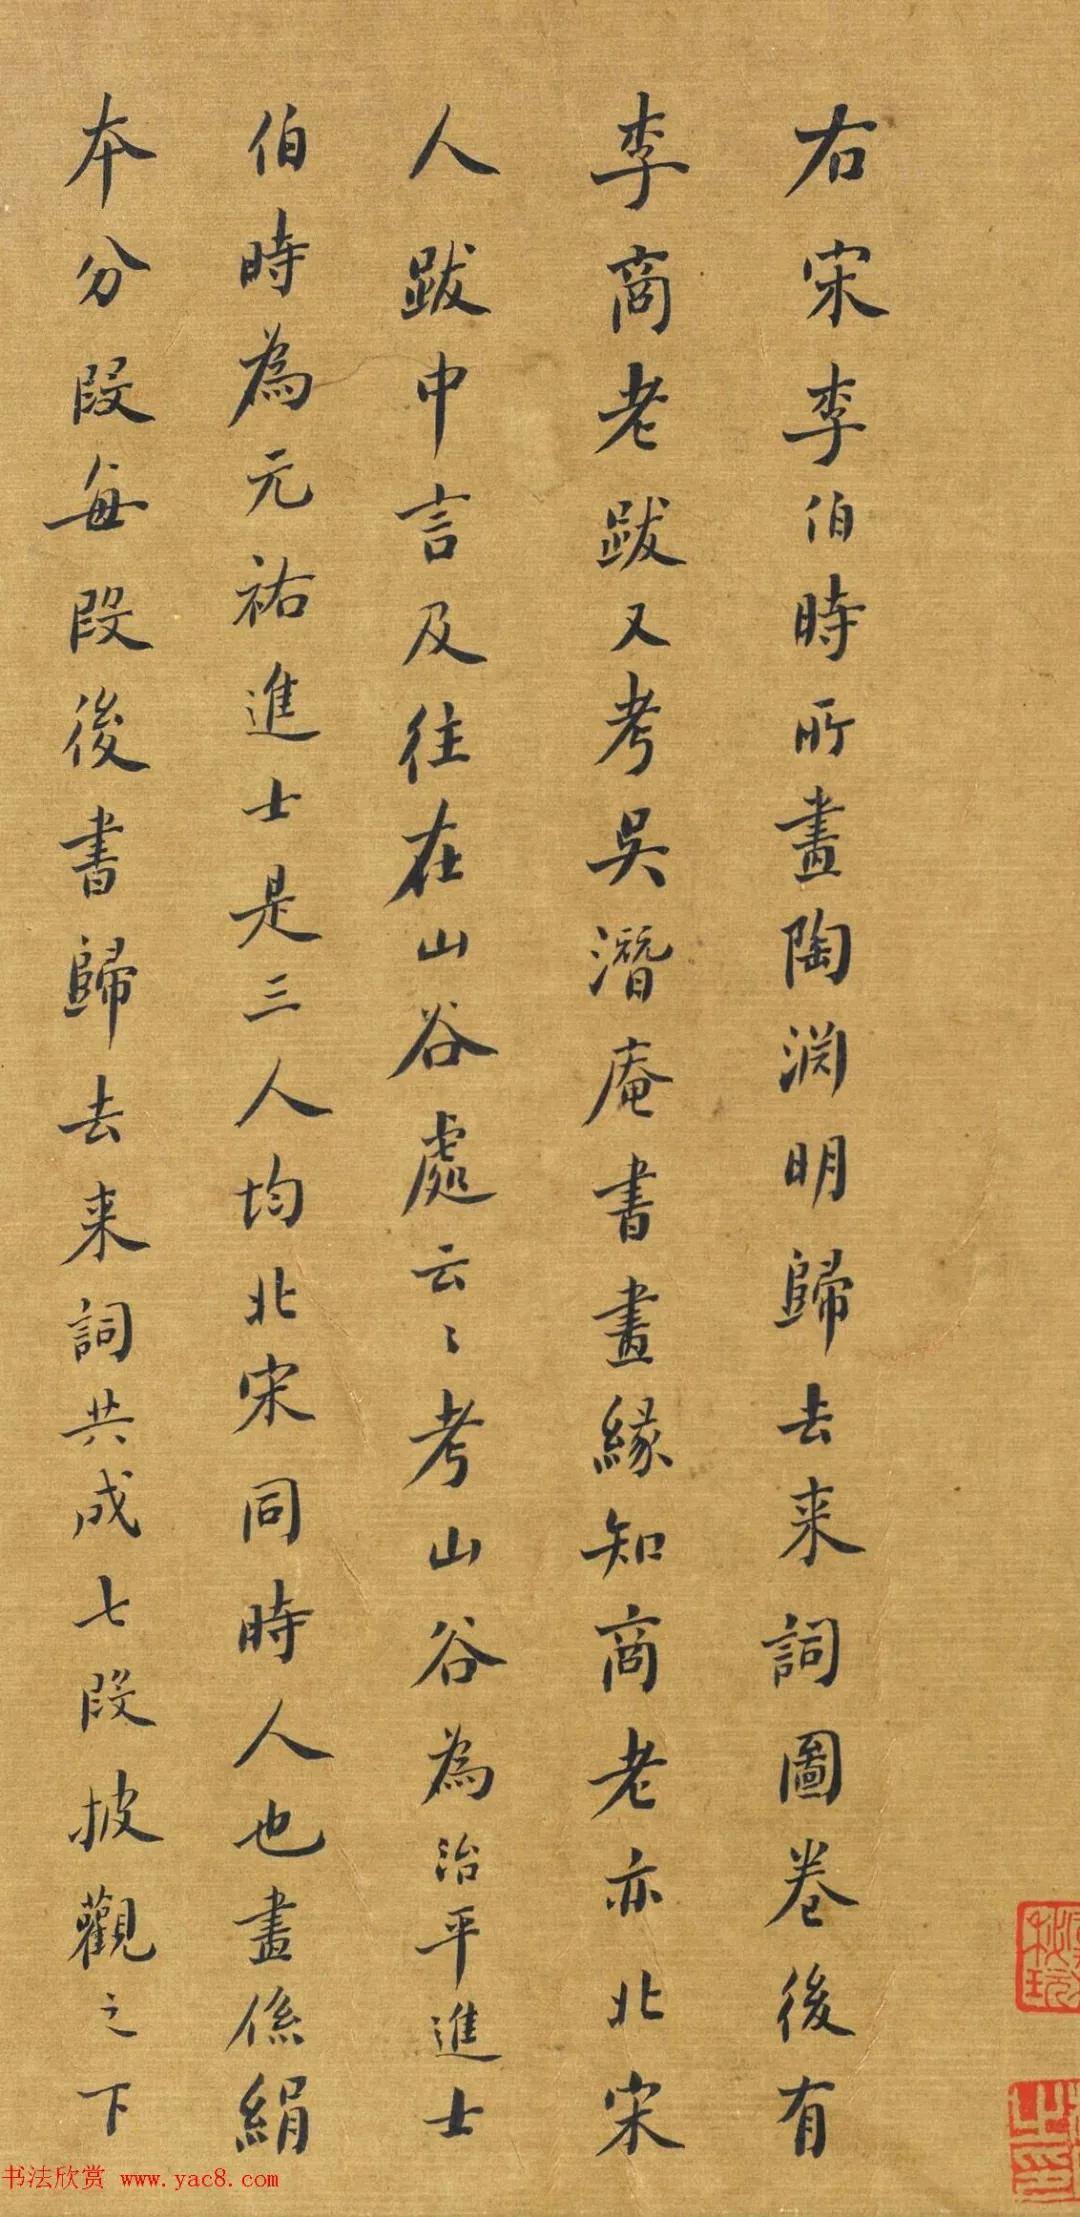 右宋李伯時所畫陶淵明歸去来詞圖卷後有
李商老跋又考吳潛庵書畫緣知商老亦北宋
人跋中言及往在山谷處云〻考山谷為治平進士
伯時為元祐進士是三人均北宋同時人也畫係絹
本分段每段後書歸去来詞共成七段披觀之下
书法欣赏 www.yac8.com